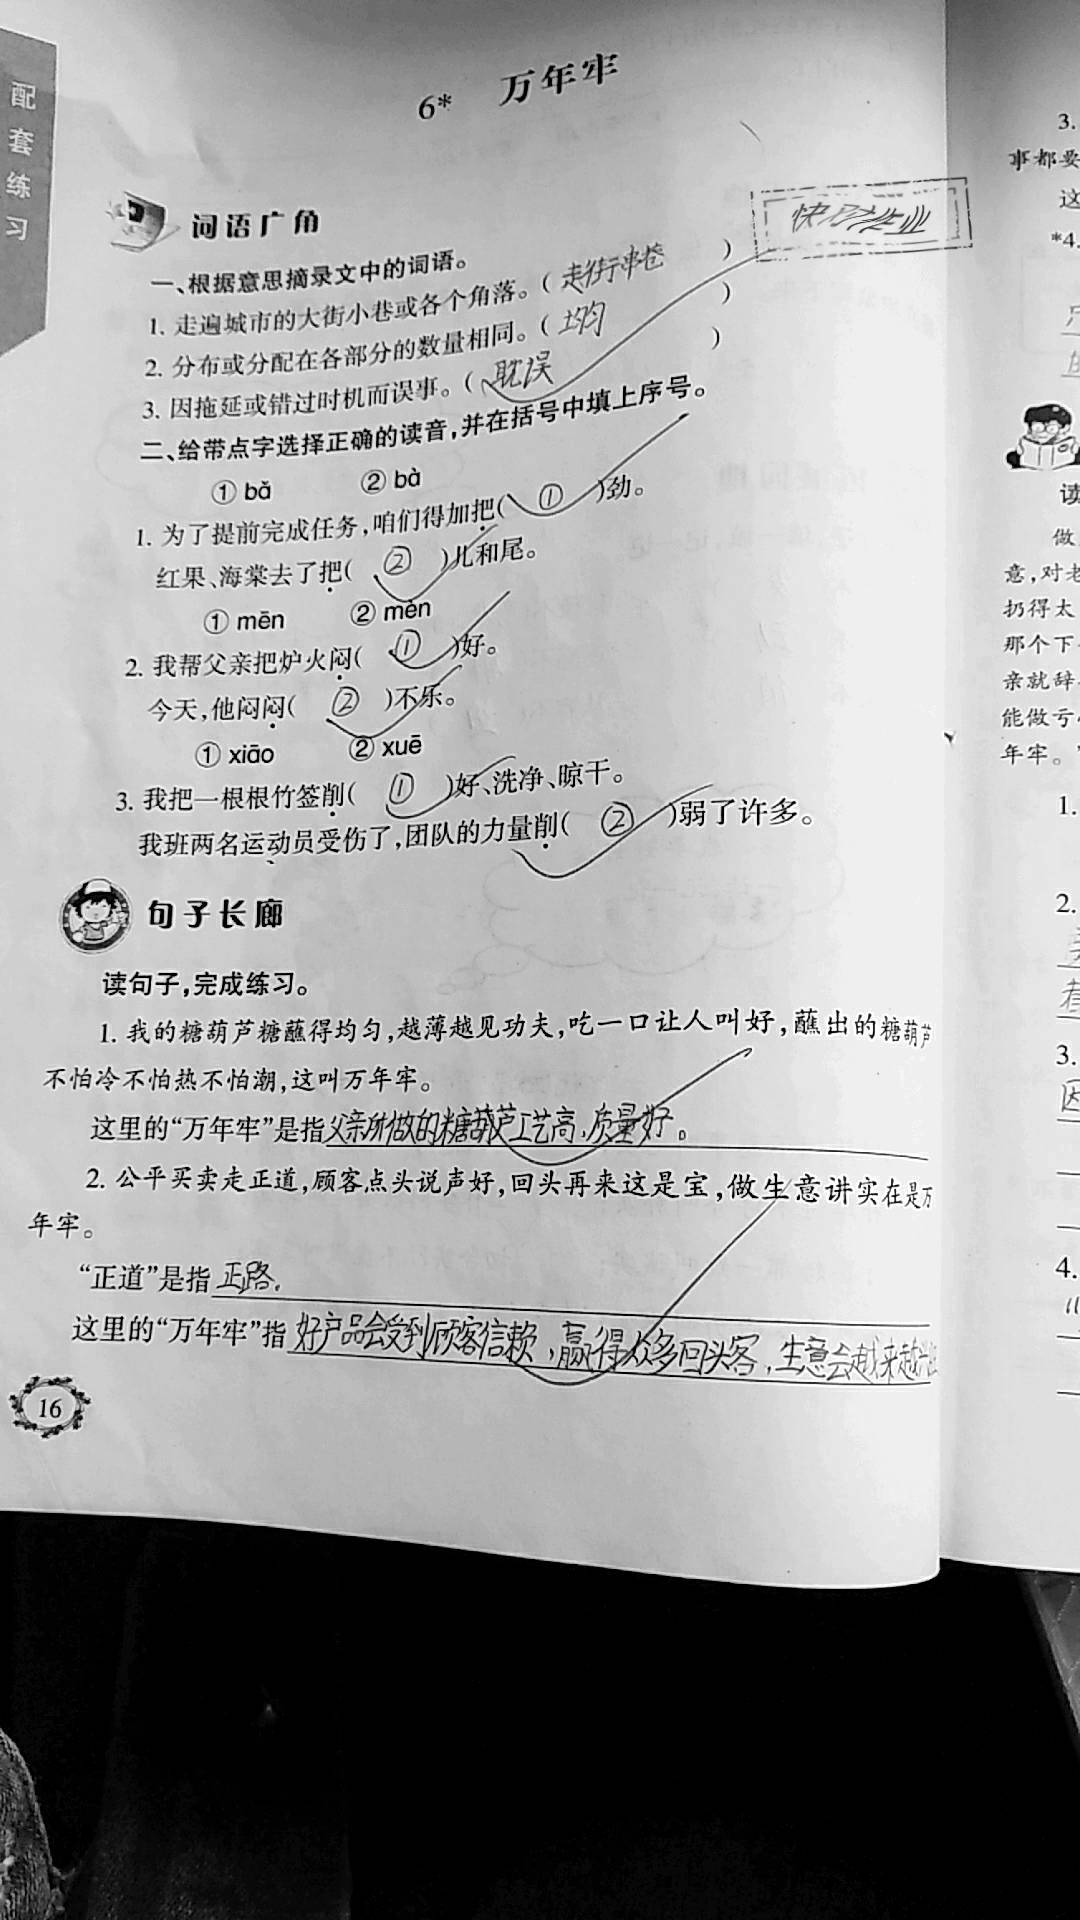 配套练习
6* 万年牢
词语广角
快对作业
一、根据意思摘录文中的词语。
1. 走遍城市的大街小巷或各个角落。( 走街串巷 )
2. 分布或分配在各部分的数量相同。( 均匀 )
3. 因拖延或错过时机而误事。( 耽误 )
二、给带点字选择正确的读音,并在括号中填上序号。
① bǎ ② bà
1. 为了提前完成任务,咱们得加把( ① )劲。
红果、海棠去了把( ② )儿和尾。
① mēn ② mèn
2. 我帮父亲把炉火闷( ① )好。
今天,他闷闷( ② )不乐。
① xiāo ② xuē
3. 我把一根根竹签削( ① )好、洗净、晾干。
我班两名运动员受伤了,团队的力量削( ② )弱了许多。
句子长廊
读句子,完成练习。
1. 我的糖葫芦糖蘸得均匀,越薄越见功夫,吃一口让人叫好,蘸出的糖葫芦
不怕冷不怕热不怕潮,这叫万年牢。
这里的“万年牢”是指父亲所做的糖葫芦工艺高,质量好。
2. 公平买卖走正道,顾客点头说声好,回头再来这是宝,做生意讲实在是万
年牢。
“正道”是指正路.
这里的“万年牢”指好产品会受到顾客信赖,赢得众多回头客,生意会越来越兴旺
16
3.
事都要
这
*4.
读
做
意,对老
扔得太
那个下
亲就辞
能做亏
年牢。
1.
2.
3.
因
4.